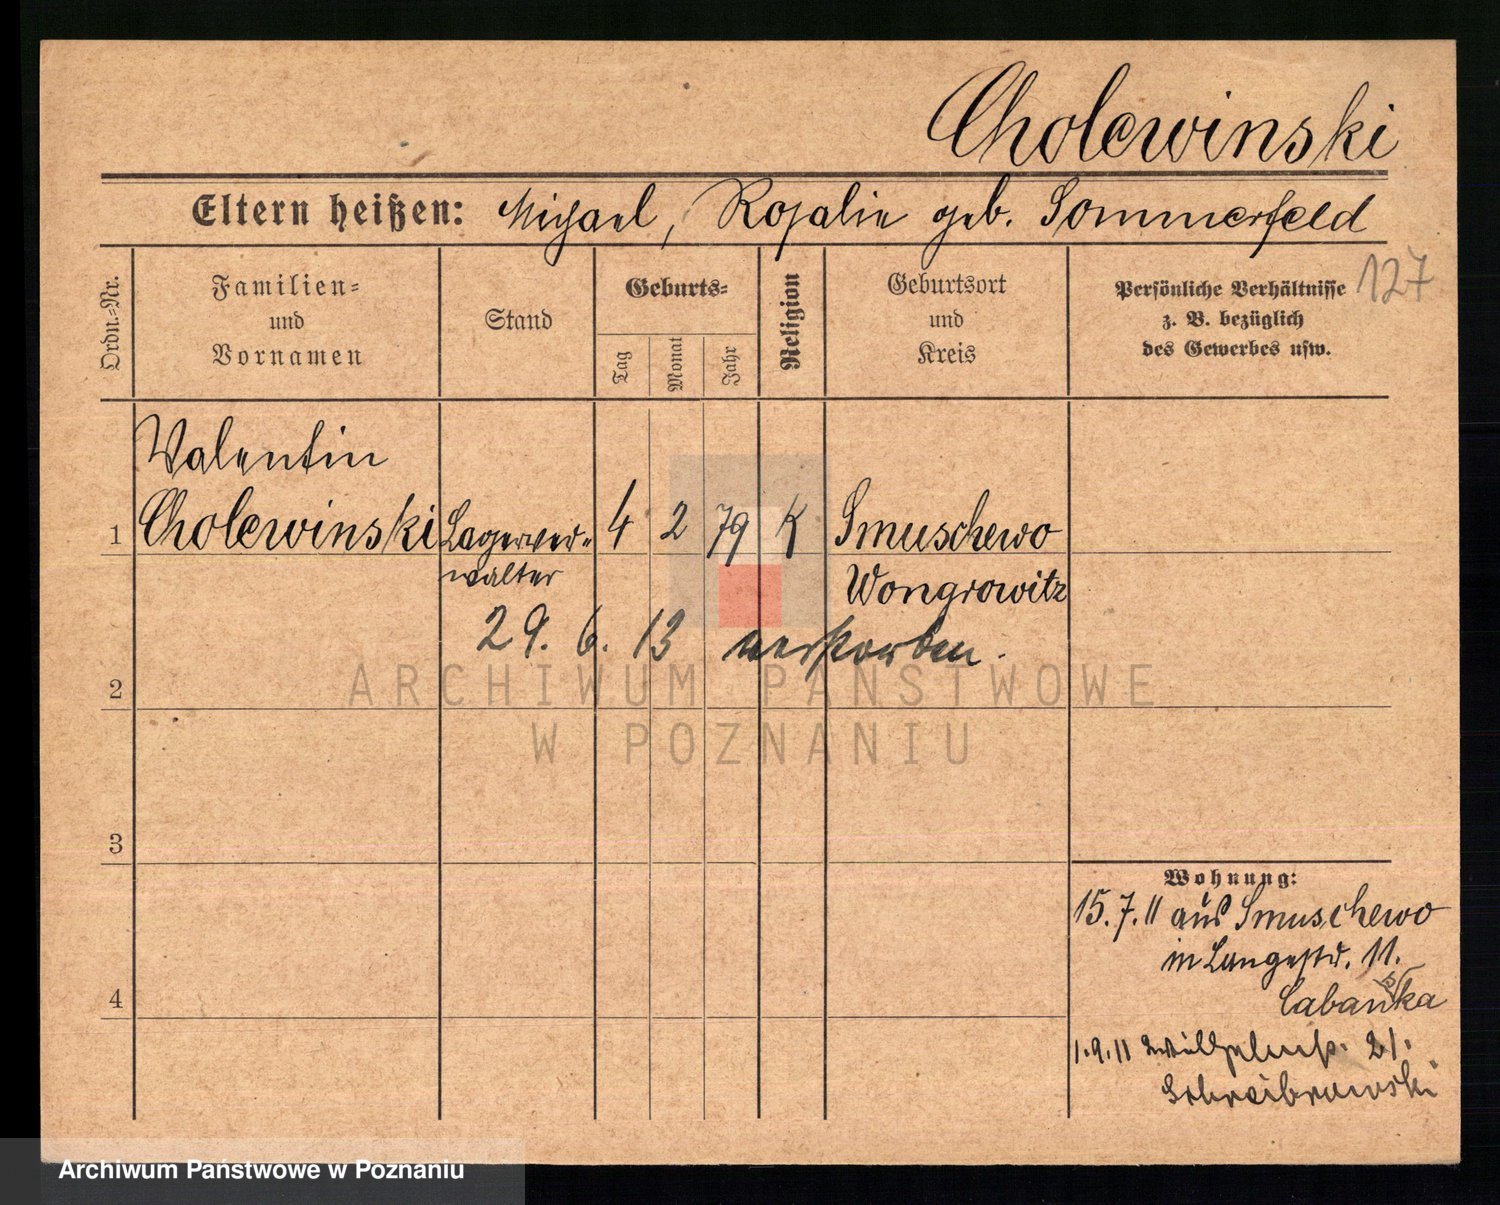 Cholewinski
Eltern heißen: Michael, Rosalie geb. Sommerfeld
127
Ordn.-Nr.
Familien-
und
Vornamen
Stand
Geburts-
Tag
Monat
Jahr
Religion
Geburtsort
und
Kreis
Persönliche Verhältnisse
z. B. bezüglich
des Gewerbes usw.
Valentin
1 Cholewinski Lagerver- 4 2 79 K Smuschewo
walter Wongrowitz
29. 6. 13 verstorben.
2
ARCHIWUM PAŃSTWOWE
W POZNANIU
3
Wohnung:
15.7.11 aus Smuschewo
in Langestr. 11.
4
1.9.11 Wilhelmstr. 21.
Archiwum Państwowe w Poznaniu